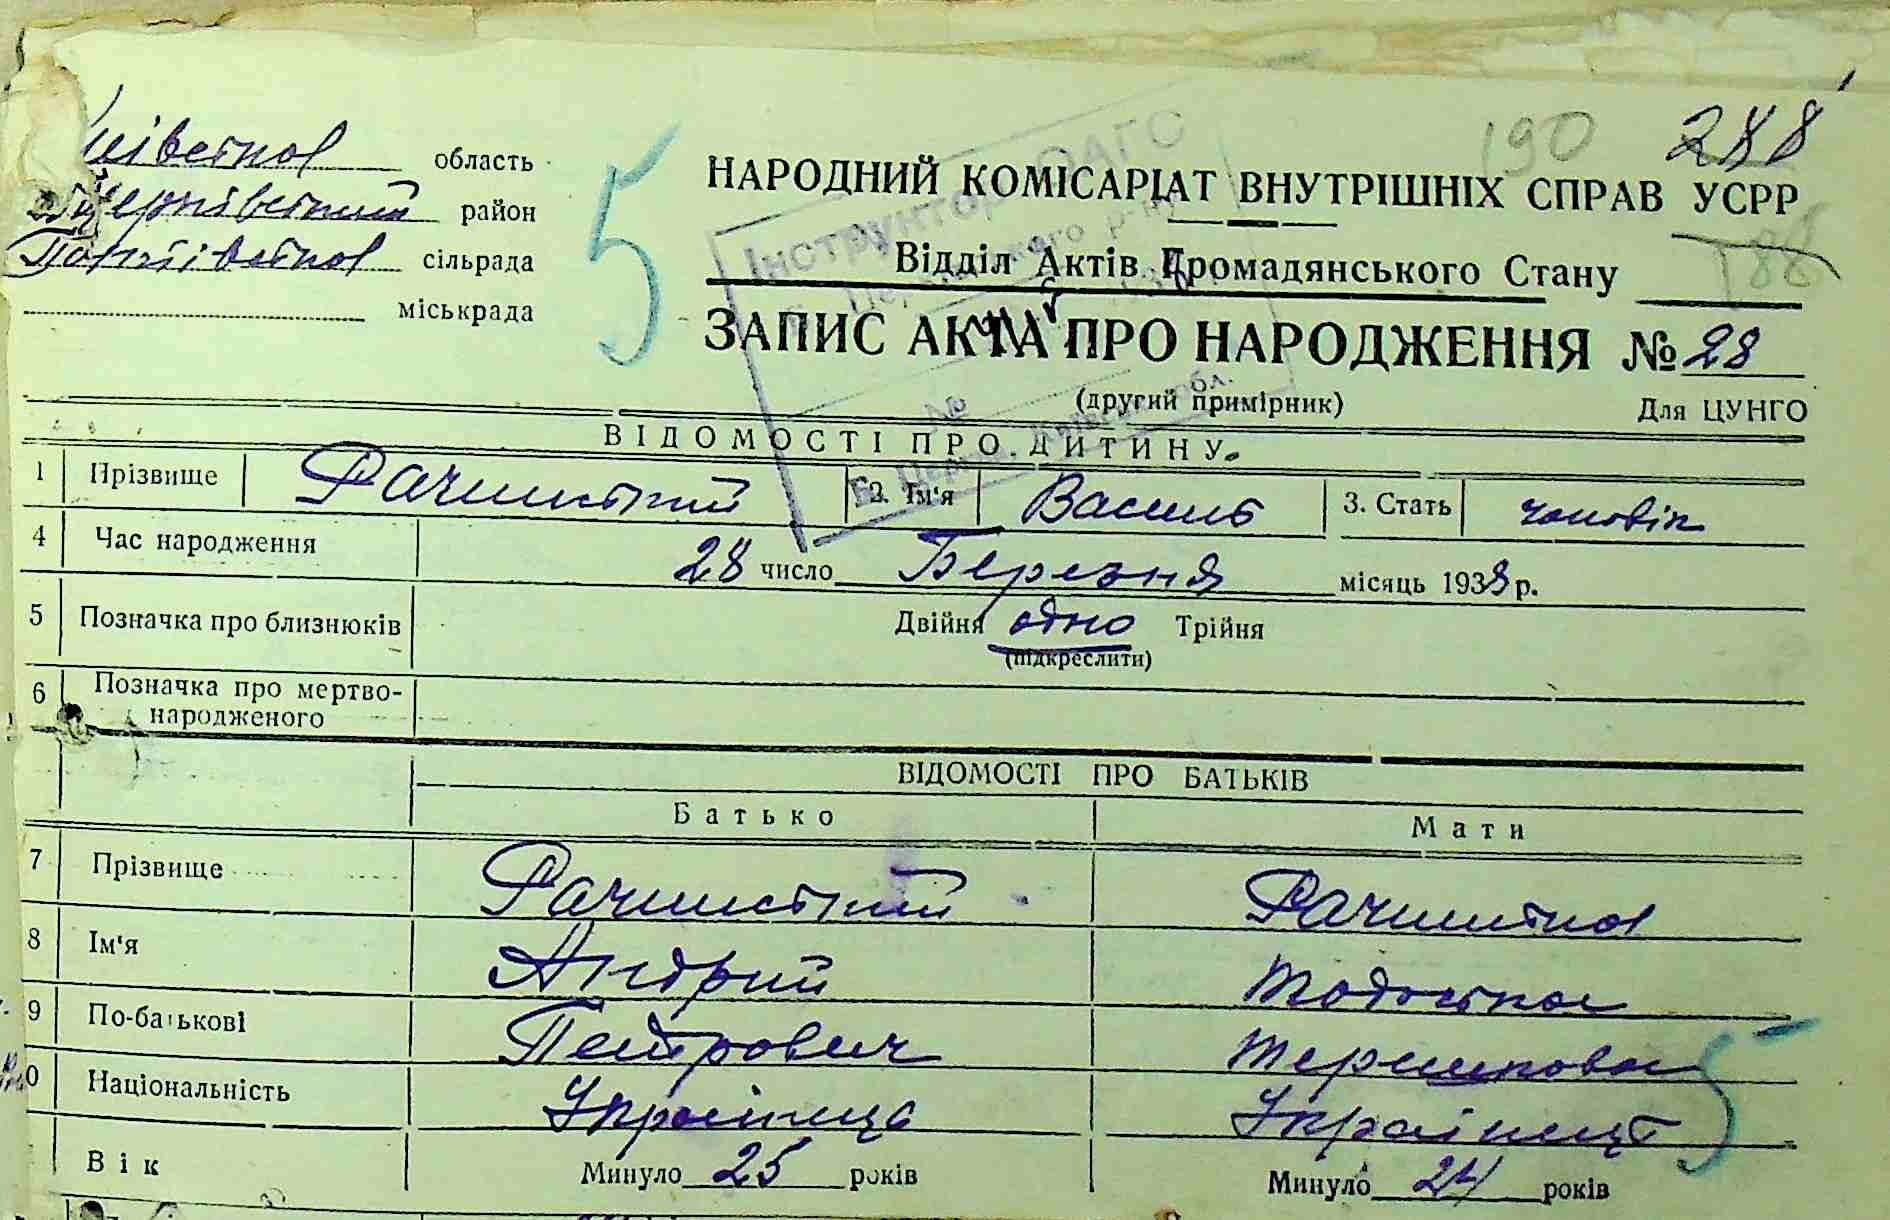 область
район
сільрада
міськрада
5
190
288
188
НАРОДНИЙ КОМІСАРІАТ ВНУТРІШНІХ СПРАВ УСРР
Відділ Актів Громадянського Стану
ЗАПИС АКТА ПРО НАРОДЖЕННЯ № 28
(другий примірник) Для ЦУНГО
Інструктор ОАГС
№
обл.
ВІДОМОСТІ ПРО ДИТИНУ.
1 Прізвище Рачинський 2. Ім'я Василь 3. Стать чоловік
4 Час народження 28 число Березня місяць 1938 р.
5 Позначка про близнюків Двійня одно Трійня
(підкреслити)
6 Позначка про мертво-
народженого
ВІДОМОСТІ ПРО БАТЬКІВ
Батько Мати
7 Прізвище Рачинський Рачинська
8 Ім'я Андрій Тодоська
9 По-батькові Петрович
0 Національність Українець Українка
5
Вік Минуло 25 років Минуло 24 років